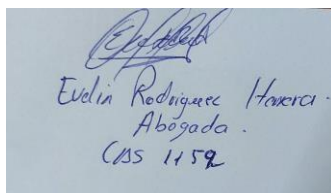 Evelin Rodriguez Herrera.
Abogada.
CBS 1159